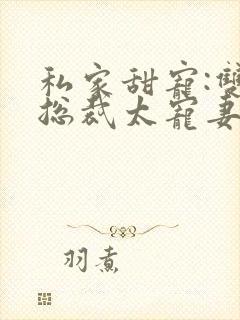 私家甜寵:雙
总裁太寵妻
羽煮